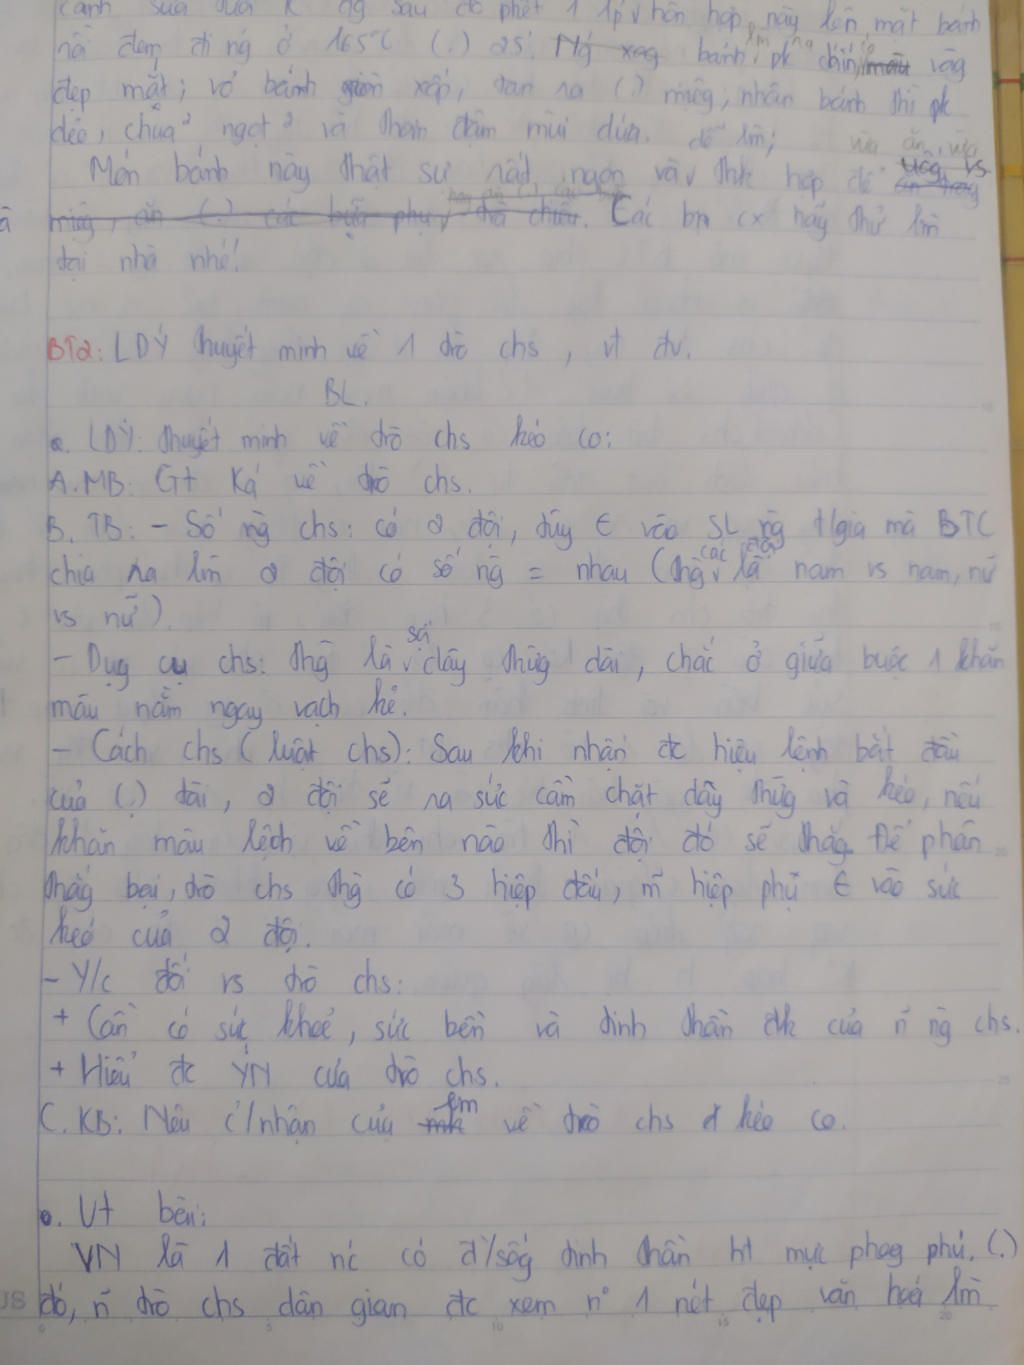 cạnh sữa dừa k đg sau đó phết 1 lp√ hỗn hợp này lên mặt bánh
rồi đem đi ng ở 165°C (.) 25'. bánh lm ra pk chín, có vàg
đẹp mắt; vỏ bánh giòn xốp, tan ra (.) miệg, nhân bánh thì pk
dẻo, chua² ngọt² và thơm đậm mùi dứa. dễ lm; vừa ăn, vừa
Món bánh này thật sự rất ngon và√ thk hợp để uốg vs
Các bn cx hãy thử lm
tại nhà nhé!
BT2: LDÝ thuyết minh về 1 trò chs, vt đv.
BL.
a. LDÝ: thuyết minh về trò chs kéo co:
A. MB: Gt Ká về trò chs.
B. TB: - Số ng chs: có 2 đội, tùy € vào SL ng t/gia mà BTC
chia ra lm 2 đội có số ng = nhau (thg √ các đội là nam vs nam, nữ
vs nữ).
- Dụg cụ chs: thg là √ sợi dây thừg dài, chắc ở giữa buộc 1 khăn
màu nằm ngay vạch kẻ.
- Cách chs (luật chs): Sau khi nhận đc hiệu lệnh bắt đầu
của (.) tài, 2 đội sẽ ra sức cầm chặt dây thừg và kéo, nếu
khăn màu lệch về bên nào thì đội đó sẽ thắg. Để phân
thắg bại, trò chs thg có 3 hiệp đấu, mỗ hiệp phụ € vào sức
kéo của 2 đội.
- Y/c đối vs trò chs:
+ Cần có sức khoẻ, sức bền và tinh thần đk của ~n ng chs.
+ Hiểu đc YN của trò chs.
C. KB: Nêu c/nhận của em về trò chs kéo co.
b. Vt bài:
VN là 1 đất nc có đ/sốg tinh thần ht mực phog phú. (.)
đó, ~n trò chs dân gian đc xem n° 1 nét đẹp văn hoá lm